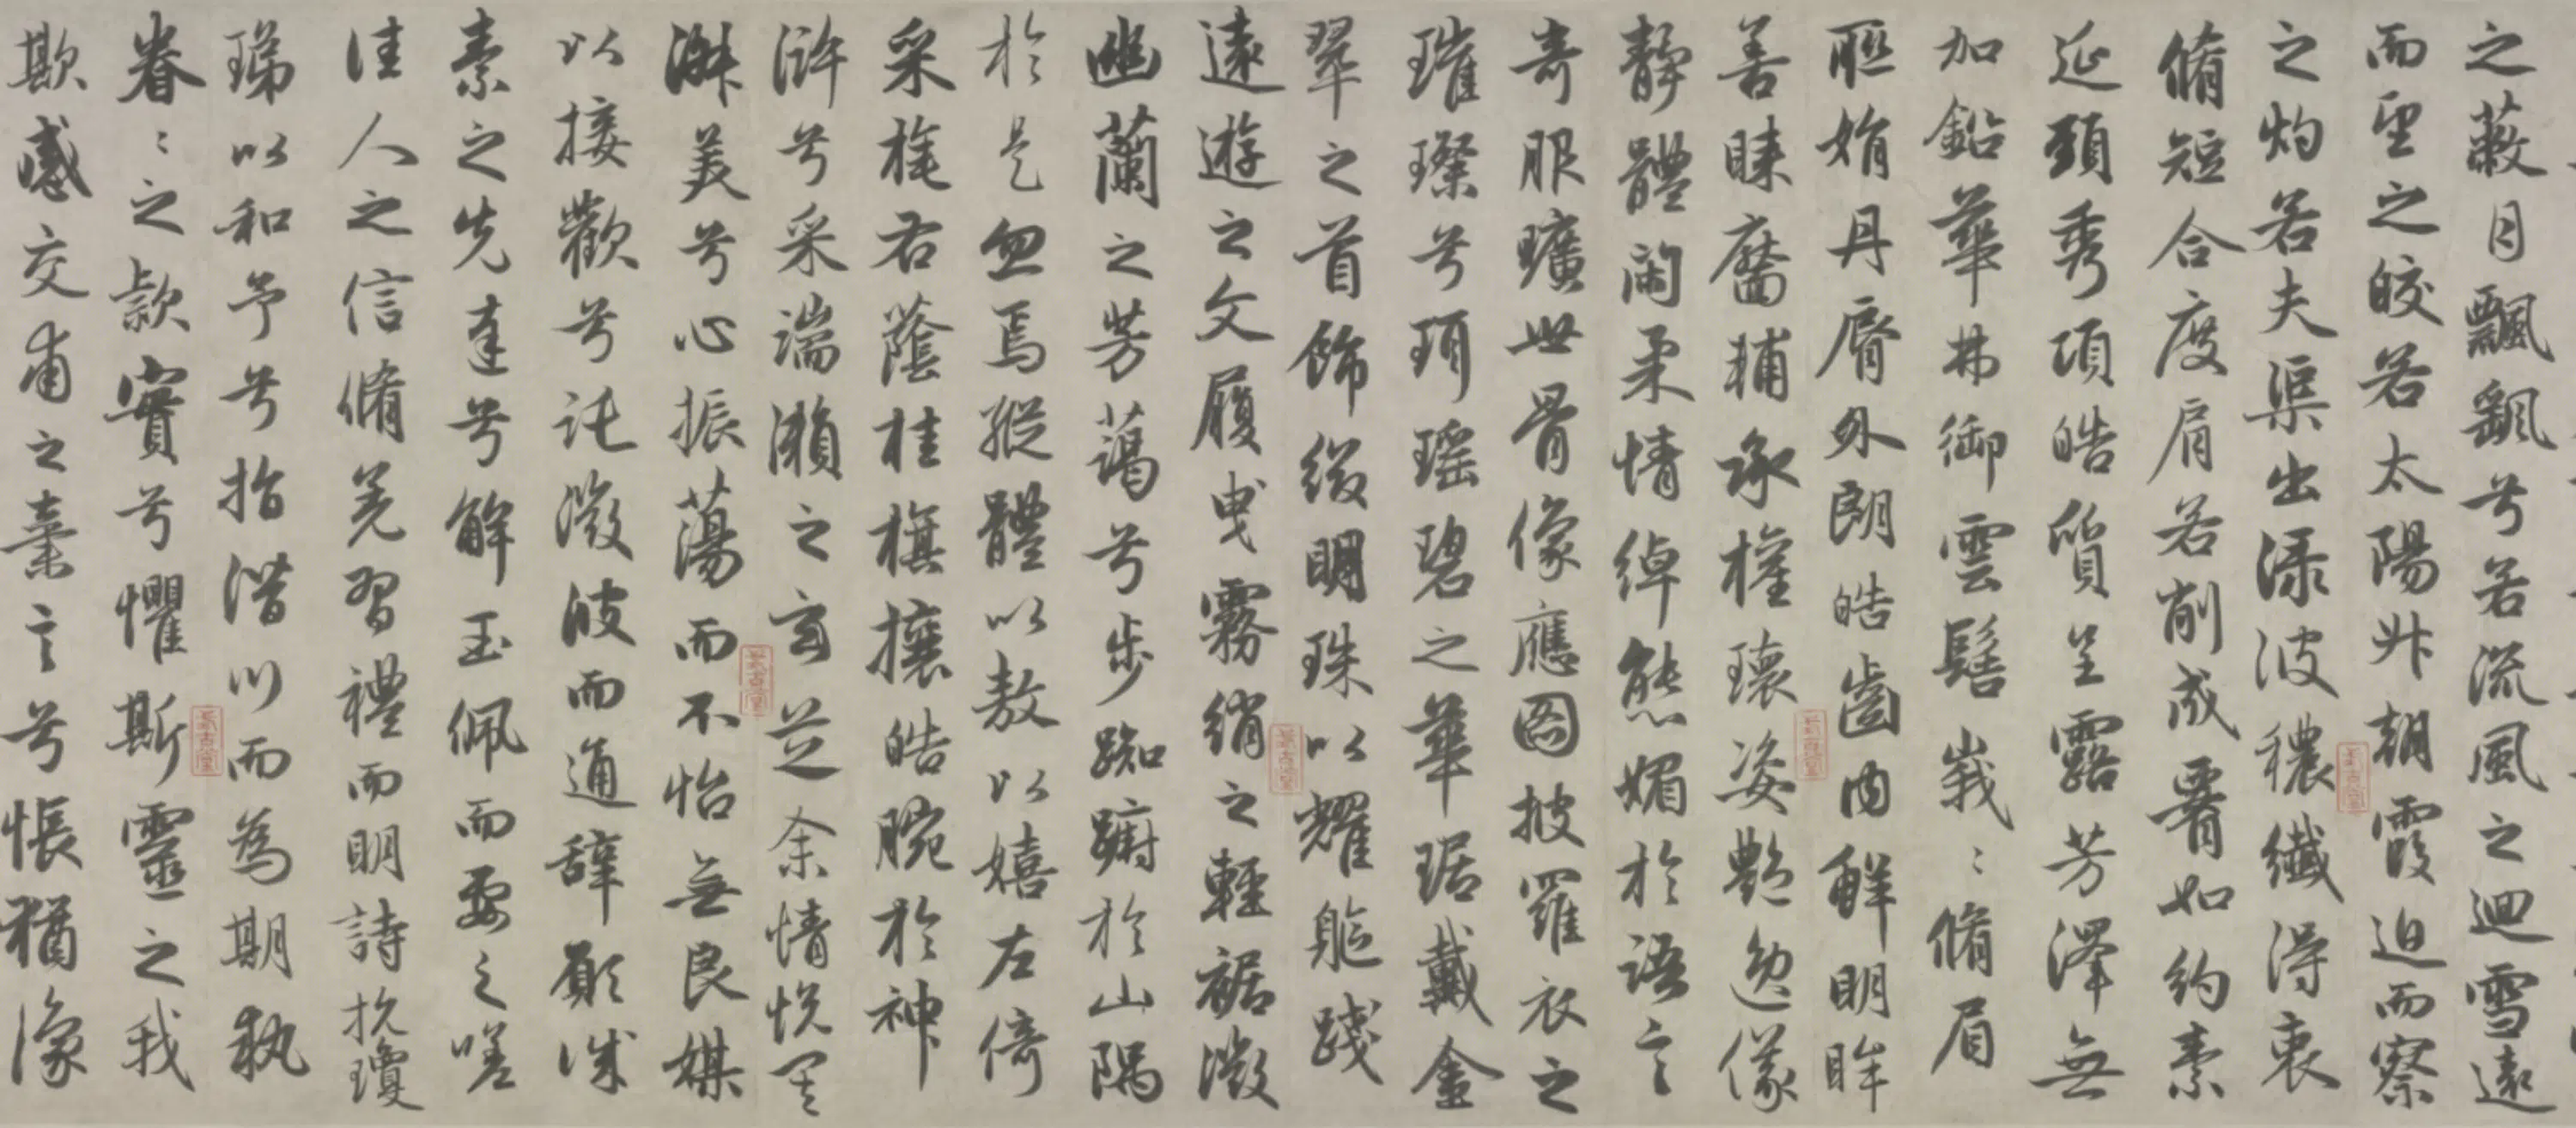 之蔽月飄飖兮若流風之迴雪遠
而望之皎若太陽升朝霞迫而察
之灼若夫渠出淥波穠纖得衷
脩短合度肩若削成署如約素
延頸秀項皓質呈露芳澤無
加鉛華弗御雲髻峩〻脩眉
聯娟丹脣外朗皓齒內鮮明眸
善睞靨輔承權瓌姿艷逸儀
靜體閑柔情綽態媚於語言
奇服曠世骨像應圖披羅衣之
璀璨兮珥瑤碧之華琚戴金
翠之首飾綴明珠以耀軀踐
遠遊之文履曳霧綃之輕裾微
幽蘭之芳藹兮步踟躕於山隅
於是忽焉縱體以敖以嬉左倚
采旄右蔭桂旗攘皓腕於神
滸兮采湍瀨之玄芝余情悅其
淑美兮心振蕩而不怡無良媒
以接歡兮託微波而通辭願誠
素之先達兮解玉佩而要之嗟
佳人之信脩羌習禮而明詩抗瓊
珶以和予兮指潛川而為期執
眷〻之款實兮懼斯靈之我
欺感交甫之棄言兮悵猶豫